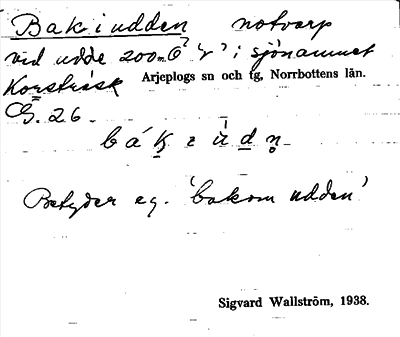 Bak i udden notvarp
vid udde 200 m. O i sjönamnet
Korsträsk Arjeplogs sn och tg, Norrbottens län.
G. 26.
Betyder eg. 'bakom udden'
Sigvard Wallström, 1938.